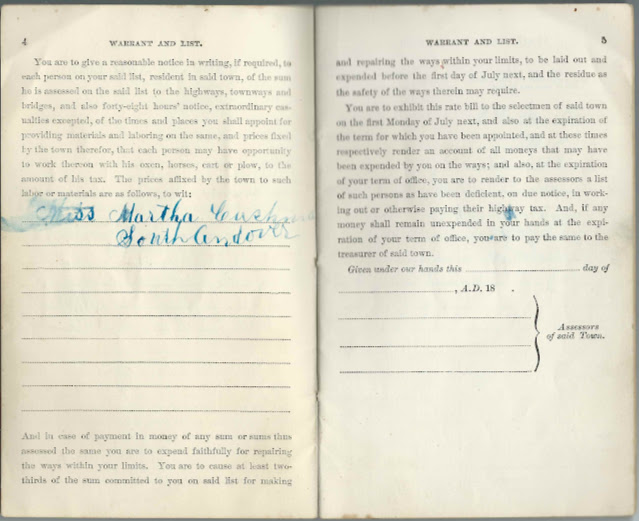 4 WARRANT AND LIST.
You are to give a reasonable notice in writing, if required, to
each person on your said list, resident in said town, of the sum
he is assessed on the said list to the highways, townways and
bridges, and also forty-eight hours' notice, extraordinary cas-
ualties excepted, of the times and places you shall appoint for
providing materials and laboring on the same, and prices fixed
by the town therefor, that each person may have opportunity
to work thereon with his oxen, horses, cart or plow, to the
amount of his tax. The prices affixed by the town to such
labor or materials are as follows, to wit:
Miss Martha Cushman
South Andover
And in case of payment in money of any sum or sums thus
assessed the same you are to expend faithfully for repairing
the ways within your limits. You are to cause at least two-
thirds of the sum committed to you on said list for making
WARRANT AND LIST. 5
and repairing the ways within your limits, to be laid out and
expended before the first day of July next, and the residue as
the safety of the ways therein may require.
You are to exhibit this rate bill to the selectmen of said town
on the first Monday of July next, and also at the expiration
of the term for which you have been appointed, and at these times
respectively render an account of all moneys that may have
been expended by you on the ways; and also, at the expiration
of your term of office, you are to render to the assessors a list
of such persons as have been deficient, on due notice, in work-
ing out or otherwise paying their highway tax. And, if any
money shall remain unexpended in your hands at the expi-
ration of your term of office, you are to pay the same to the
treasurer of said town.
Given under our hands this day of
, A.D. 18 .
Assessors
of said Town.